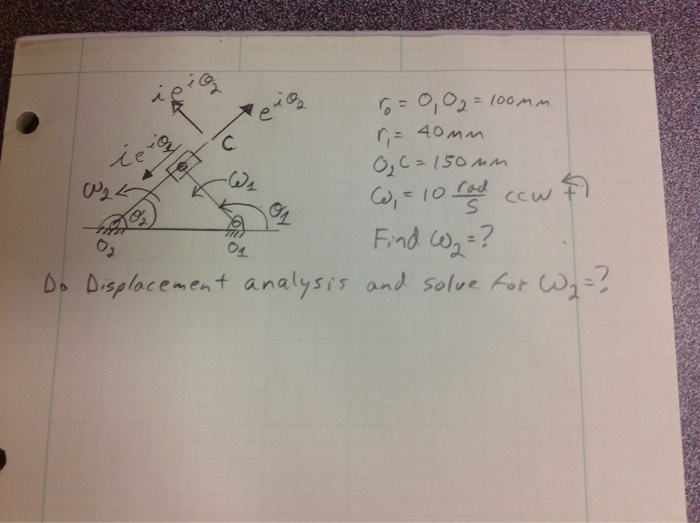 ie^{iθ_2}
e^{iθ_2}
C
ie^{iθ_1}
ω_2
ω_1
θ_2
θ_1
O_2
O_1
r_0 = O_1O_2 = 100mm
r_1 = 40mm
O_2C = 150mm
ω_1 = 10 rad/s ccw +
Find ω_2=?
Do Displacement analysis and solve for ω_2=?